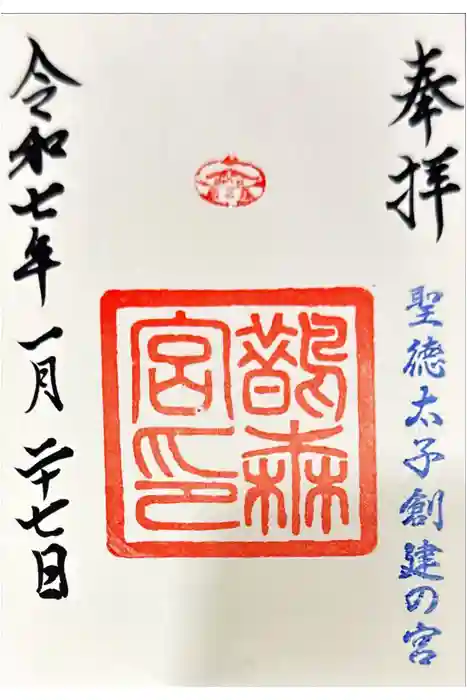 奉拝
聖徳太子創建の宮
鵲森
宮印
令和七年一月二十七日